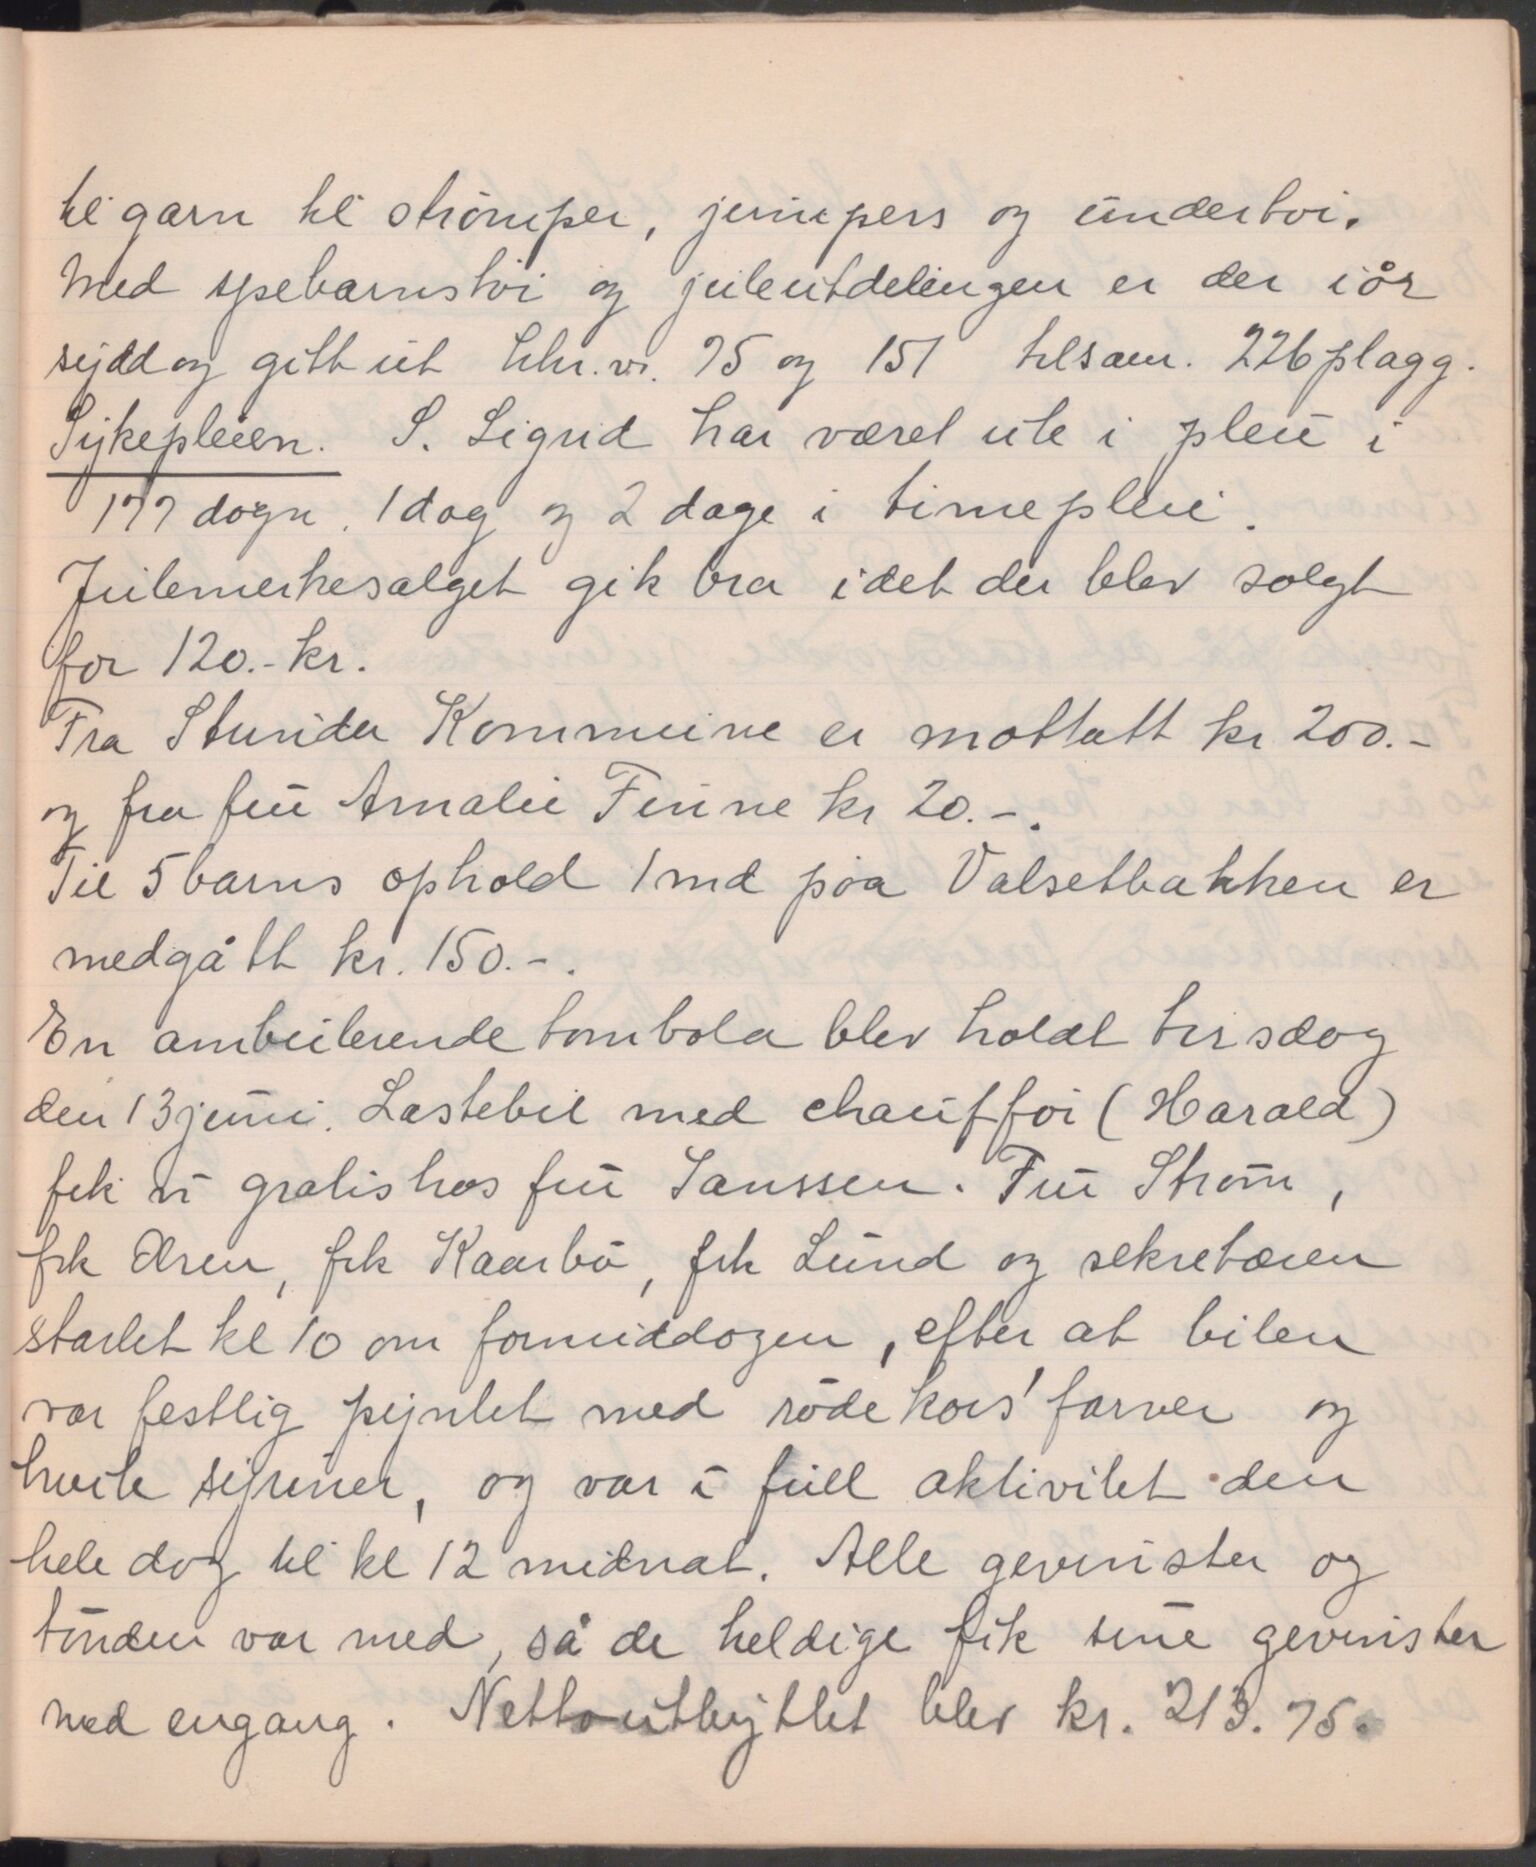 til garn til strömper, jumpers og undertöi.
Med spebarnstöi og juleutdelingen er der iår
sydd og gitt ut hhv. 75 og 151 tilsam. 226 plagg.
Sykepleien. S. Sigrid har været ute i pleie i
177 døgn, 1 dag og 2 dage i timepleie.
Julemerkesalget gik bra idet der blev solgt
for 120.- kr.
Fra Strinda Kommune er mottatt kr 200.-
og fra fru Amalie Finne kr 20.-.
Til 5 barns ophold 1 md paa Valsetbakken er
medgått kr. 150.-.
En ambulerende tombola blev holdt tirsdag
den 13 juni. Lastebil med chaufför (Harald)
fik vi gratis hos fru Janssen. Fru Ström,
frk Olsen, frk Kaarbö, frk Lund og sekretæren
startet kl 10 om formiddagen, efter at bilen
var festlig pyntet med röde kors' farver og
hvite syriner, og var i full aktivitet den
hele dag til kl 12 midnat. Alle gevinster og
tönden var med, så de heldige fik sine gevinster
med engang. Nettoutbyttet blev kr. 213.75.